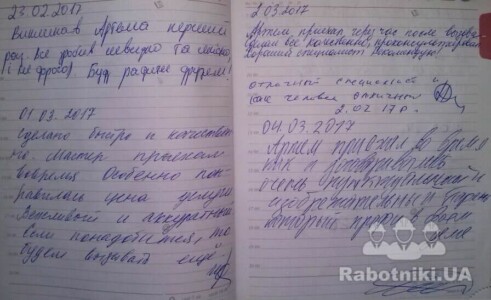 23.02.2017
Викликав Артема перший
раз. Все зробив швидко та якісно
(і не дорого) Буд радити друзям!
01.03.2017
Сделано быстро и качествен-
но. Мастер приехал
вовремя. Особенно пон-
равилась цена услуги
Вежливый и аккуратный
Если понадобится, то
будем вызывать ещё
2.03.2017
Артем приехал через час после вызова
сделал все качественно, проконсультировал
Хороший специалист. Рекомендую!
отличный специалист и
как человек отличный
2.02.17 г.
04.03.2017
Артем приехал во время
как и договаривались
очень пунктуальный и
изобретательный парень
который профи в своём
деле
Rabotniki.UA